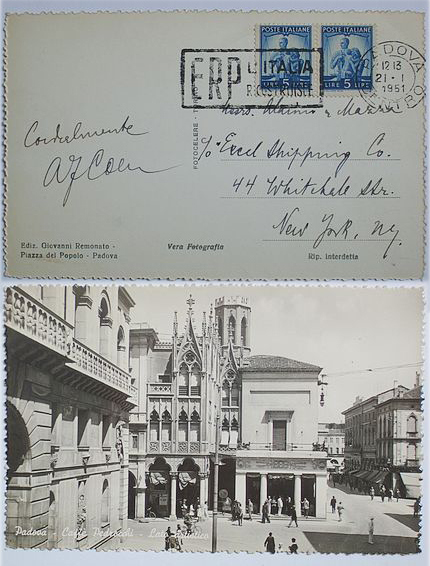 POSTE ITALIANE POSTE ITALIANE
LIRE 5 LIRE LIRE 5 LIRE
ERP L'ITALIA
RICOSTRUISCE
PADOVA
12 13
21 - 1
1951
Messrs. Marino & Mazzei
c/o Excel Shipping Co.
44 Whitehall Str.
New York, NY.
Cordialmente
FOTOCELERE -
Ediz. Giovanni Remonato -
Piazza del Popolo - Padova
Vera Fotografia
Rip. interdetta
Padova - Caffè Pedrocchi - Lato artistico